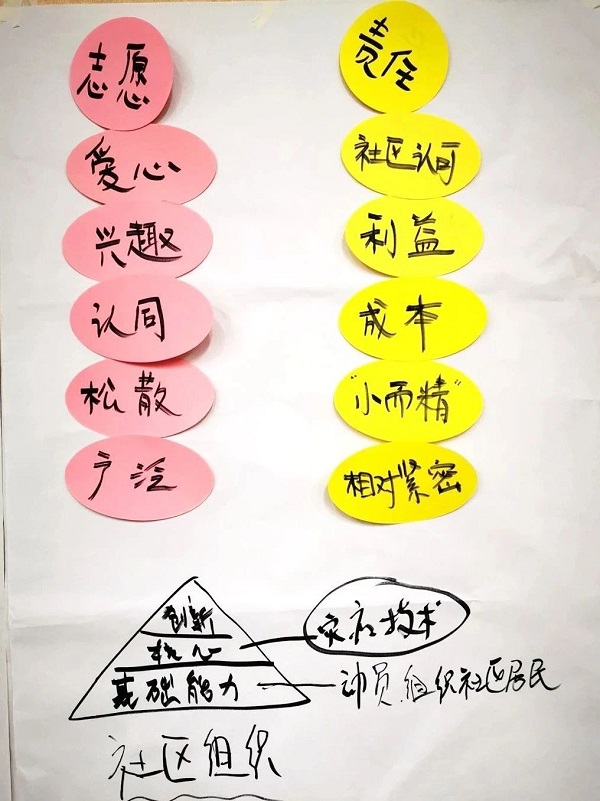 志愿
爱心
兴趣
认同
松散
广泛
责任
社区认可
利益
成本
"小而精"
相对紧密
创新
核心
基础能力
实社技术
动员.组织社区居民
社区组织